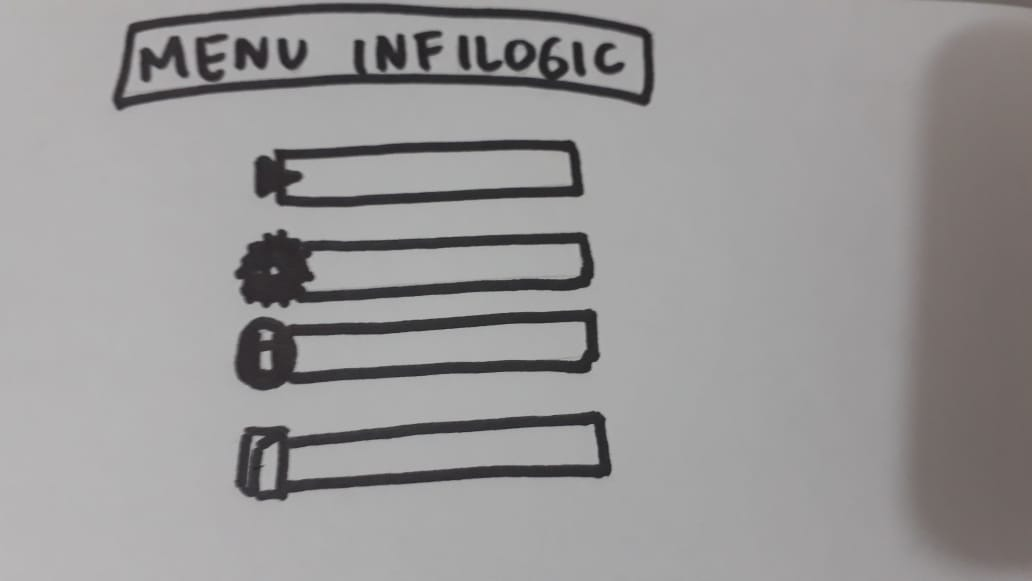 MENU INFILOGIC